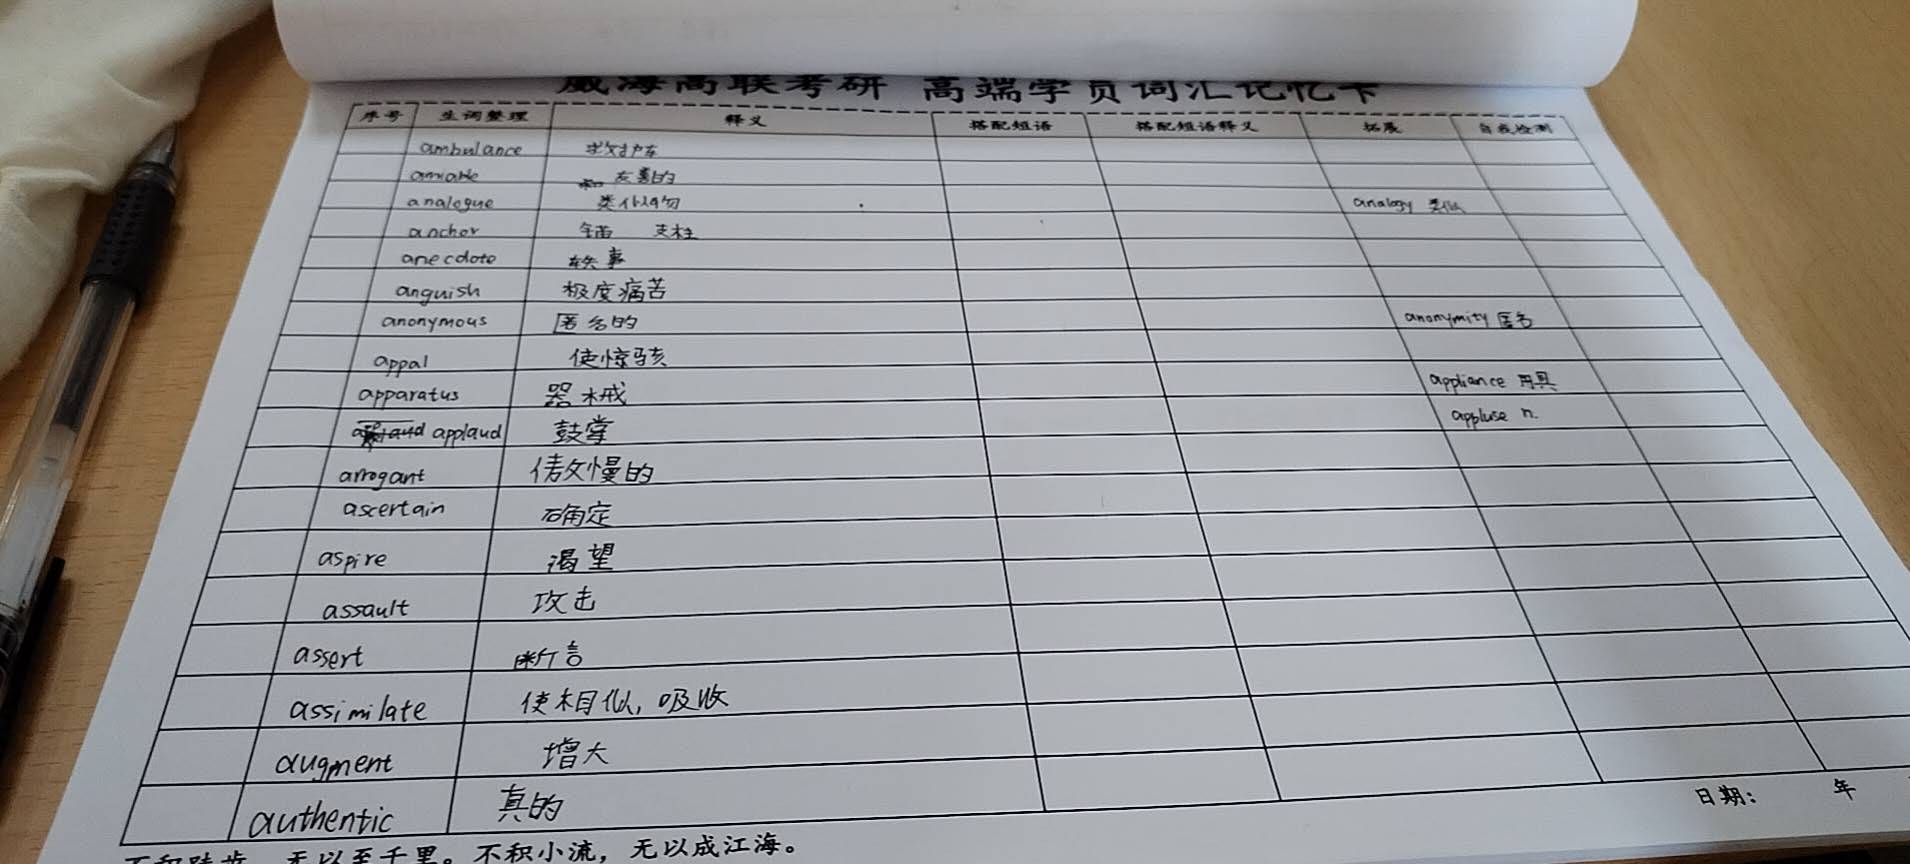 威海高联考研 高端学员词汇记忆卡
序号 生词整理 释义 搭配短语 搭配短语释义 拓展 自我检测
ambulance 救护车
amiable 友善的
analogue 类似物 analogy 类似
anchor 锚 支柱
anecdote 轶事
anguish 极度痛苦
anonymous 匿名的 anonymity 匿名
appal 使惊骇
apparatus 器械 appliance 用具
applaud 鼓掌 appluse n.
arrogant 傲慢的
ascertain 确定
aspire 渴望
assault 攻击
assert 断言
assimilate 使相似, 吸收
augment 增大
authentic 真的
日期: 年
不积跬步, 无以至千里。不积小流, 无以成江海。